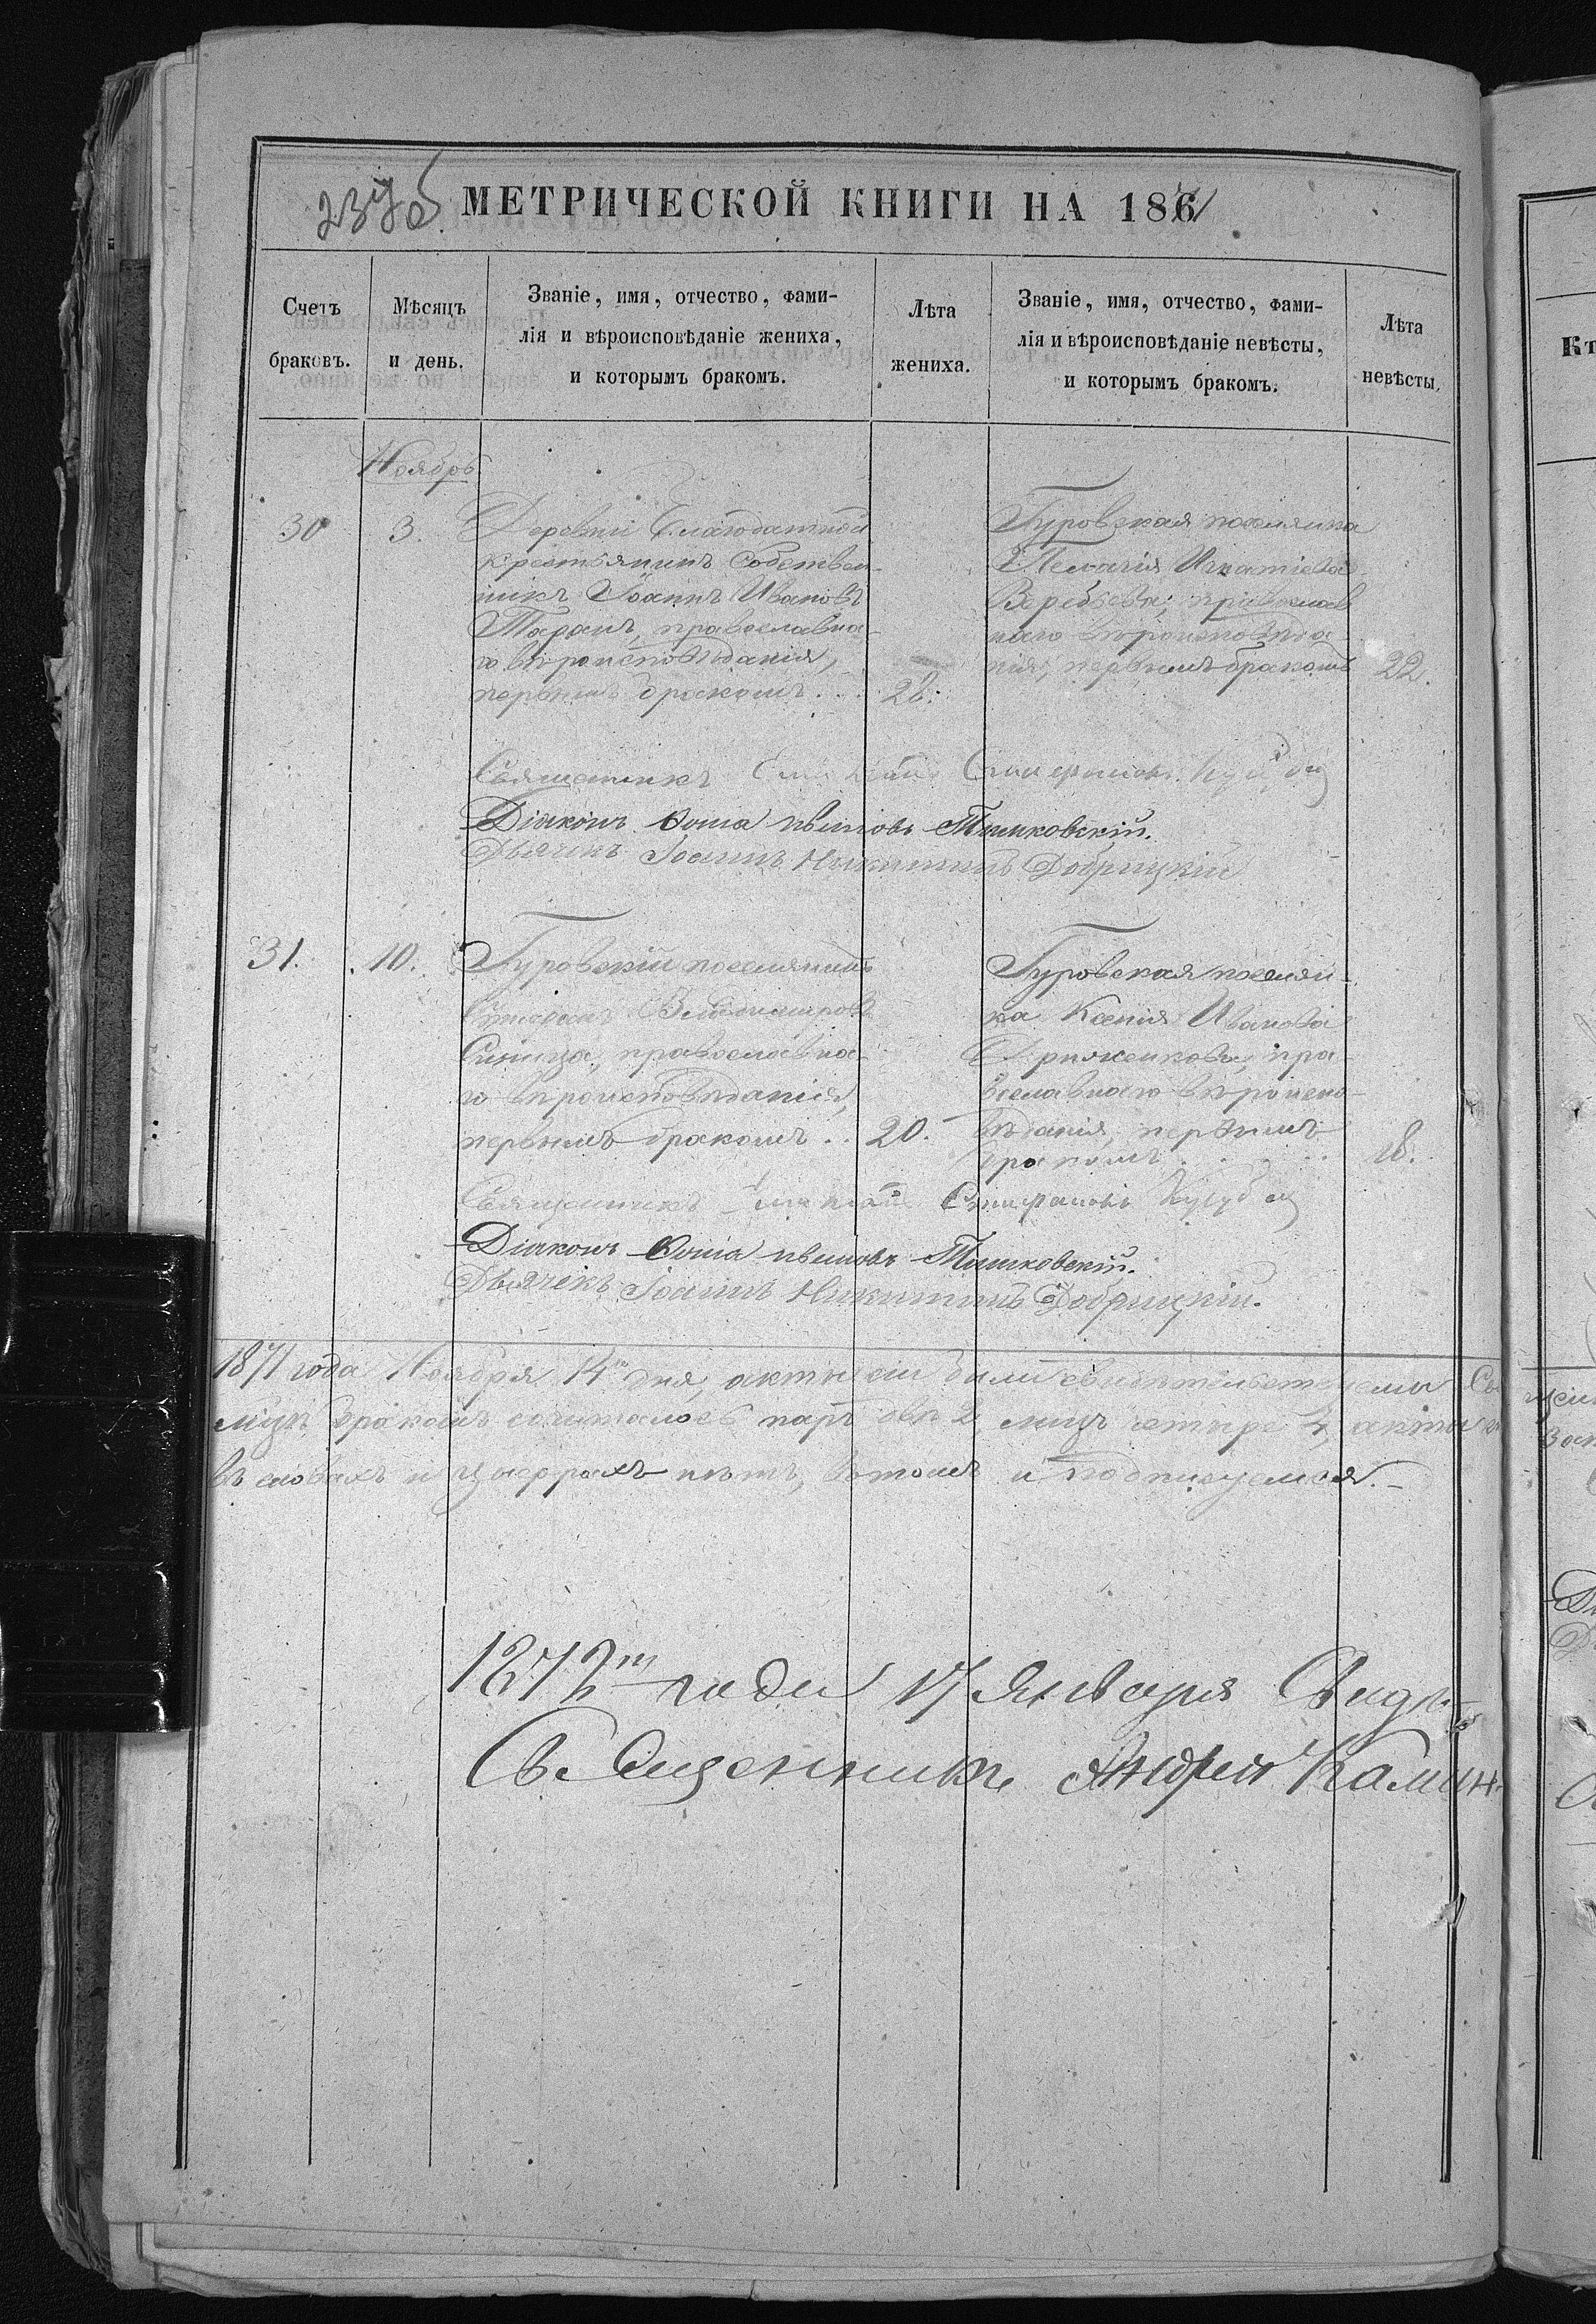 237 об
МЕТРИЧЕСКОЙ КНИГИ НА 1871
Счетъ браковъ.
Мѣсяцъ и день.
Званіе, имя, отчество, фами-
лія и вѣроисповѣданіе жениха,
и которымъ бракомъ.
Лѣта жениха.
Званіе, имя, отчество, фами-
лія и вѣроисповѣданіе невѣсты,
и которымъ бракомъ.
Лѣта невѣсты.
Ноябрь
30
3.
Деревни Благодатной
крестьянинъ собствен-
никъ Іоаннъ Ивановъ
Таранъ, православна-
го вѣроисповѣданія,
первымъ бракомъ . . .
28.
Гуровская поселянка
Пелагія Игнатіева
Веребьева, православ
наго вѣроисповѣда-
нія, первымъ бракомъ
22.
Священникъ
Діаконъ Ѳома Тимковскій.
Дьячекъ Іоаннъ Никитинъ Добрицкій
31.
10.
Гуровскій поселянинъ
Стефанъ
Синица, православна-
го вѣроисповѣданія,
первымъ бракомъ . .
20.
Гуровская поселян-
ка Ксенія Иванова
пра-
вославнаго вѣроиспо-
вѣданія, первымъ
бракомъ . . . . .
18.
Священникъ
Діаконъ Ѳома Тимковскій.
Дьячекъ Іоаннъ Никитинъ Добрицкій.
1871 года Ноября 14 дня, акты сіи были свидѣтельствуемы
бракомъ сочиталось паръ двѣ 2, лицъ четыре 4, акты
въ словахъ и цыфрахъ нѣтъ, въ томъ и подписуемся.
1872 года 17 Января Свидѣ-
Священникъ Андрей Калин